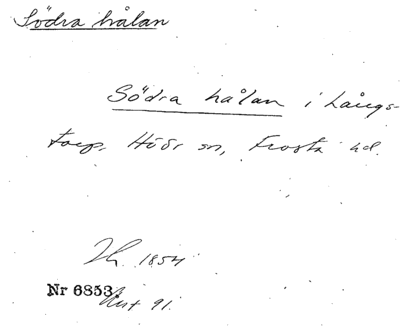 Södra hålan
Södra hålan i Långs-
torp. Höör sn, Frosta hd.
1854
Nr 6853
91.